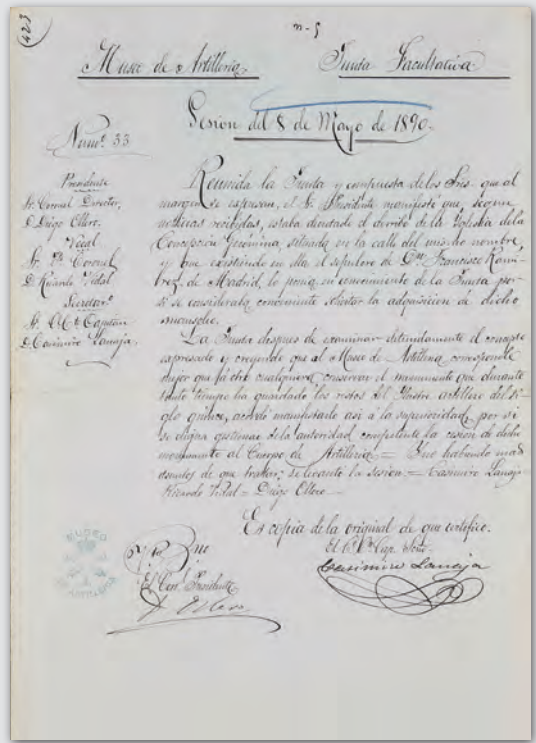 (423
n-5
Museo de Artillería.
Junta Facultativa
Sesión del 8 de Mayo de 1890.
Numº 33
Presidente
Sr. Coronel Director,
D. Diego Ollero.
Vocal
Sr. Tte Coronel
D. Ricardo Vidal
Secretarº
Sr. Cte Capitan
D. Casimiro Lanaja.
Reunida la Junta y compuesta de los Sres. que al
margen se expresan, el Sr. Presidente manifestó que, segun
noticias recibidas, estaba decretado el derribo de la Iglesia de la
Concepcion Gerónima, situada en la calle del mismo nombre,
y que existiendo en ella el sepulcro de Dn. Francisco Rami-
rez, de Madrid, lo ponia en conocimiento de la Junta por
si se consideraba conveniente solicitar la adquisicion de dicho
mausoleo.
La Junta despues de examinar detenidamente el concepto
expresado y creyendo que al Museo de Artilleria corresponde
mejor que á otro cualquiera conservar el monumento que durante
tanto tiempo ha guardado los restos del ilustre artillero del si-
glo quince, acordó manifestarlo asi á la superioridad, por si
se digna gestionar de la autoridad competente la cesion de dicho
monumento al Cuerpo de Artilleria = Y no habiendo mas
asuntos de que tratar, se levantó la sesion = Casimiro Lanaja =
Ricardo Vidal = Diego Ollero
Es copia de la original de que certifico.
El Cte Cap. Srio
Casimiro Lanaja
Vto Bno
El Cor. Presidente
D. Ollero
MUSEO
ARTILLERIA